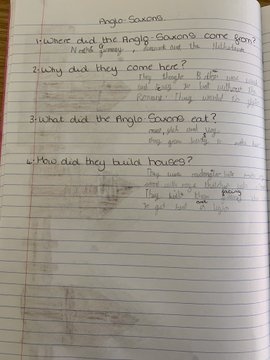 Anglo-Saxons.
1. Where did the Anglo-Saxons come from?
North Germany, Denmark and the Netherlands
2. Why did they come here?
They thought Britain were weak
and easy to beat without the
Romans. They wanted to
3. What did the Anglo-Saxons eat?
meat, fish and veg.
they grow barley to make
4. How did they build houses?
They were rectangular
wood with
They built them facing
to get heat and light